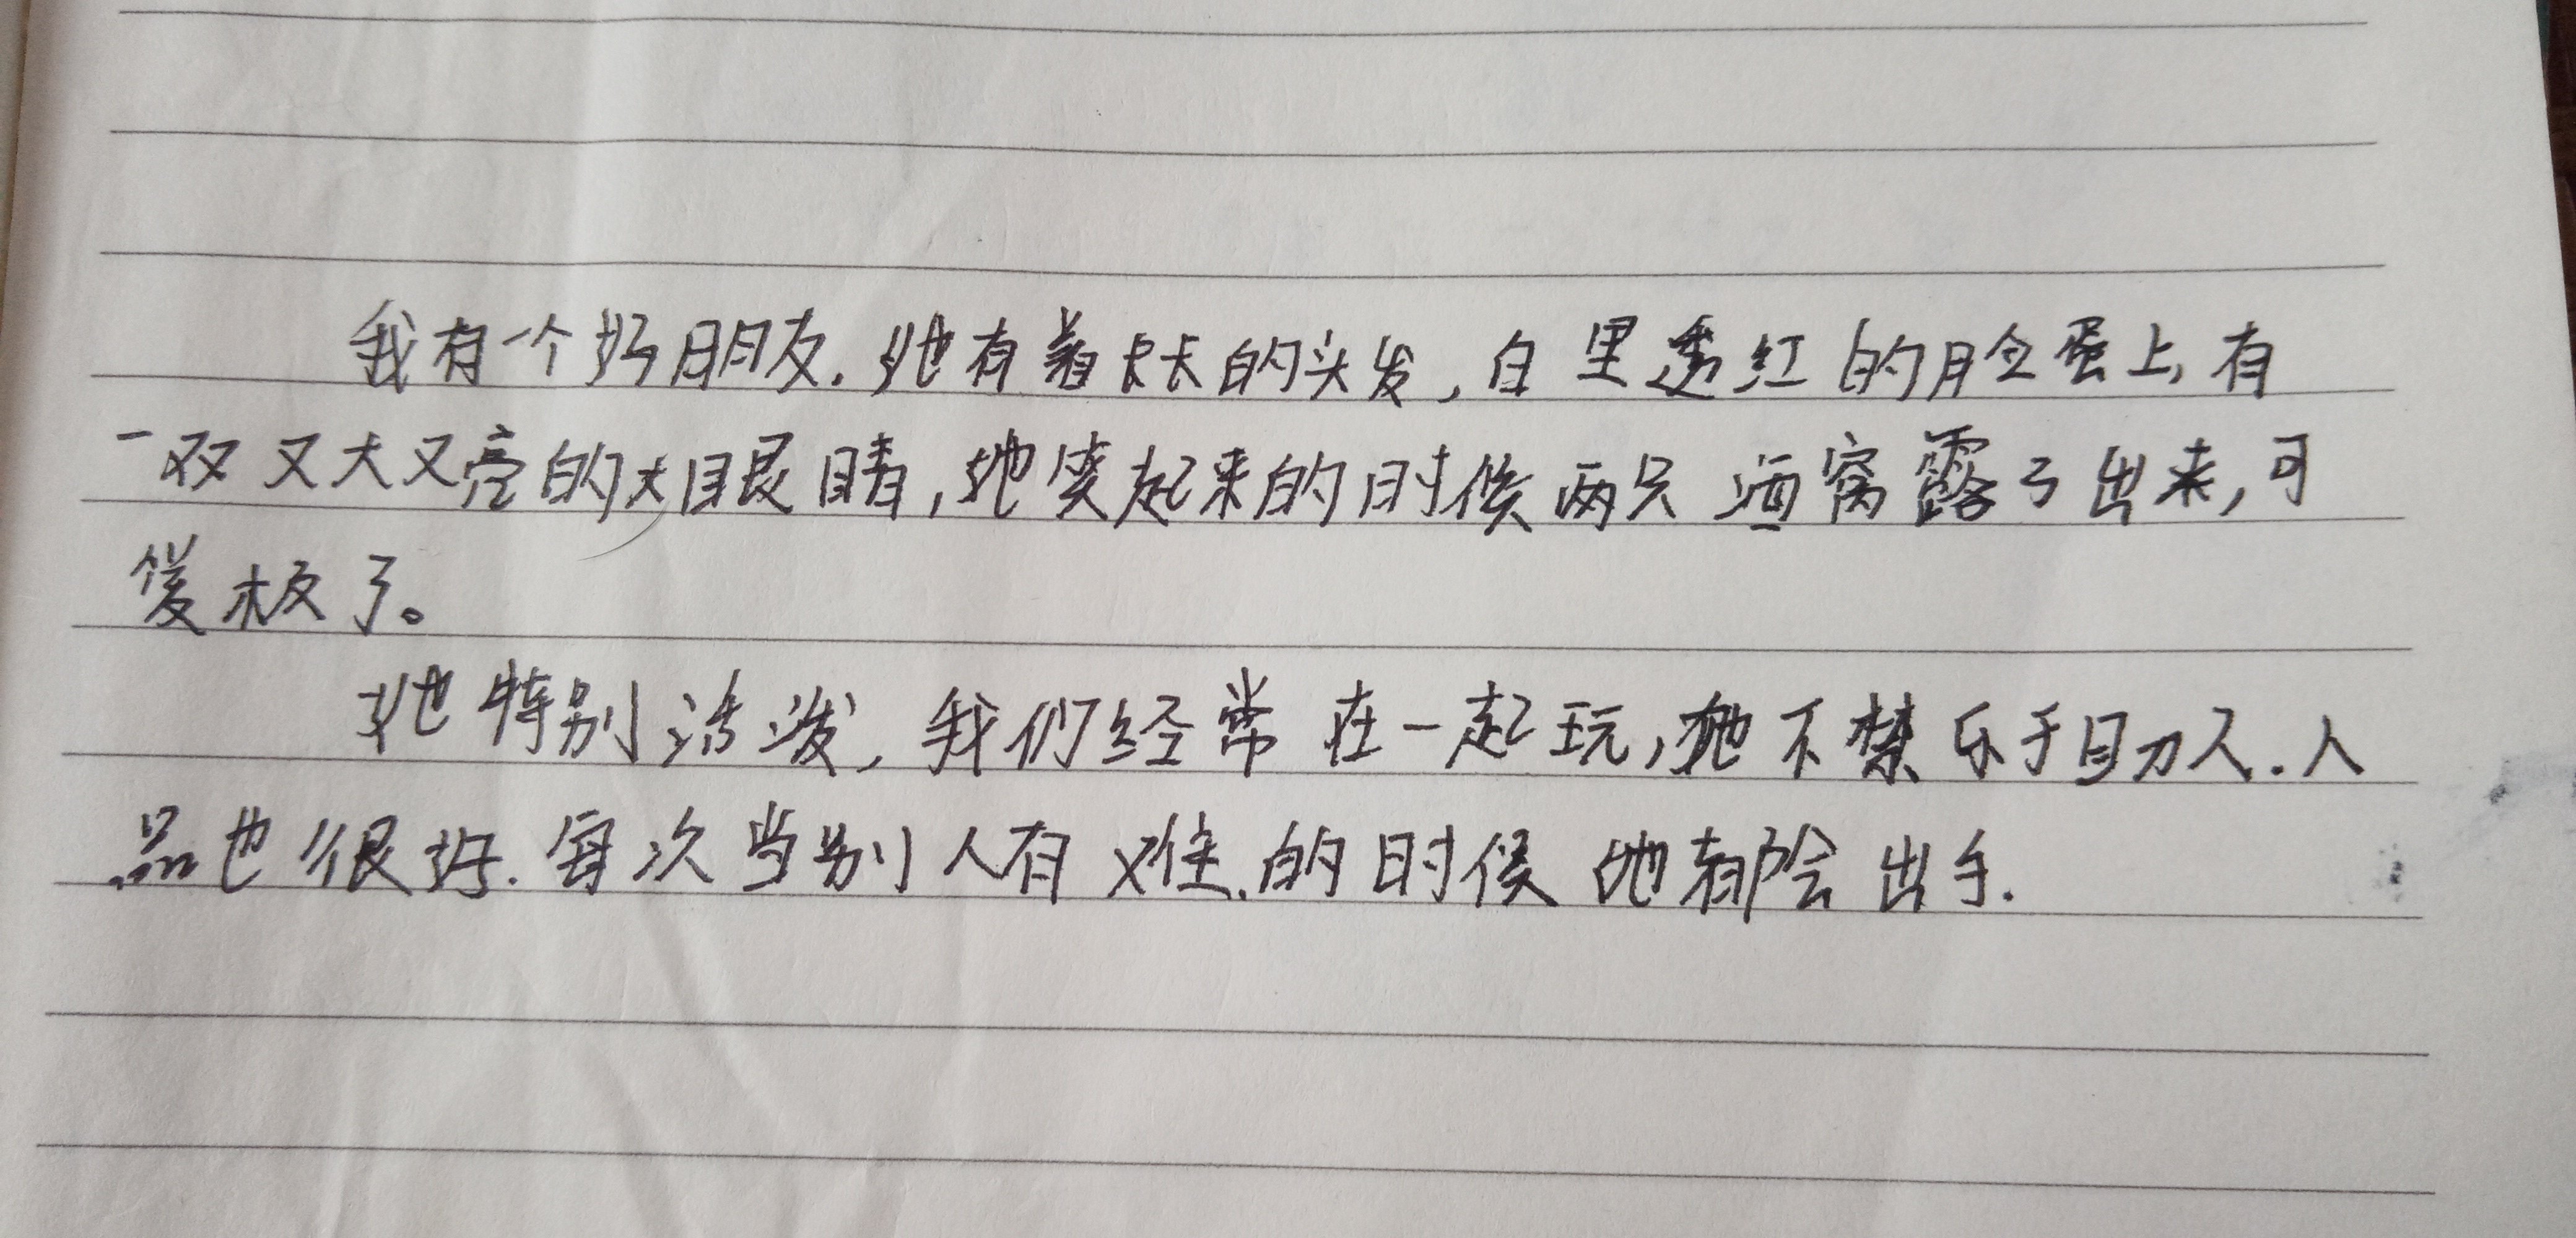 我有一个好朋友.她有着长长的头发,白里透红的脸蛋上,有
一双又大又亮的大眼睛,她笑起来的时候两只酒窝露了出来,可
爱极了。
她特别活泼,我们经常在一起玩,她不禁乐于助人.人
品也很好.每次当别人有难.的时候她都会出手.